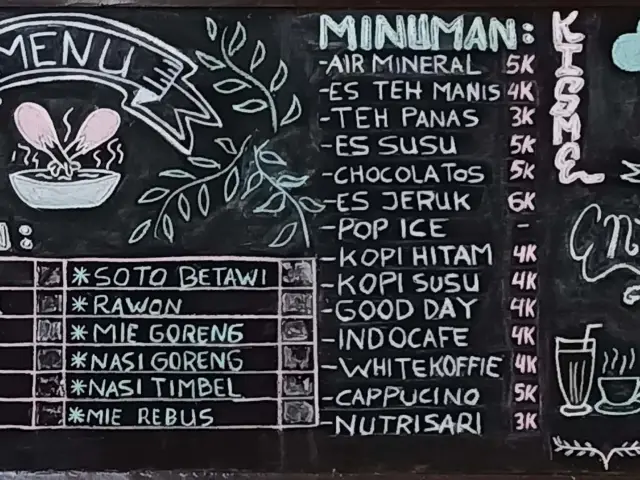 MENU
MINUMAN:
-AIR MINERAL 5K
-ES TEH MANIS 4K
-TEH PANAS 3K
-ES SUSU 5K
-CHOCOLATOS 5K
-ES JERUK 6K
-POP ICE -
-KOPI HITAM 4K
-KOPI SUSU 4K
-GOOD DAY 4K
-INDOCAFE 4K
-WHITEKOFFIE 4K
-CAPPUCINO 5K
-NUTRISARI 3K
*SOTO BETAWI
*RAWON
*MIE GORENG
*NASI GORENG
*NASI TIMBEL
*MIE REBUS